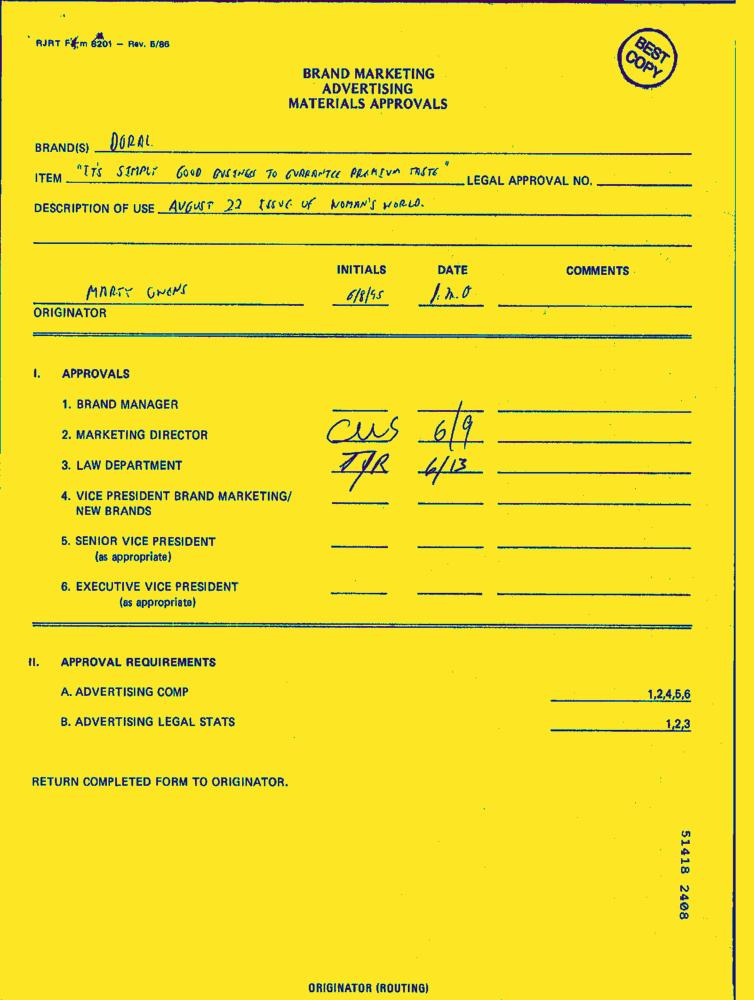 RJRT Form 8201 — Rev. 5/86
BEST
COPY
BRAND MARKETING
ADVERTISING
MATERIALS APPROVALS
BRAND(S) DORAL
ITEM "IT'S SIMPLY GOOD BUSINESS TO GUARANTEE PREMIUM TASTE" LEGAL APPROVAL NO.
DESCRIPTION OF USE AUGUST 22 ISSUE OF WOMAN'S WORLD.
INITIALS DATE COMMENTS
MARTY OWENS 6/8/95
ORIGINATOR
I. APPROVALS
1. BRAND MANAGER
2. MARKETING DIRECTOR 6/9
3. LAW DEPARTMENT 6/13
4. VICE PRESIDENT BRAND MARKETING/
NEW BRANDS
5. SENIOR VICE PRESIDENT
(as appropriate)
6. EXECUTIVE VICE PRESIDENT
(as appropriate)
II. APPROVAL REQUIREMENTS
A. ADVERTISING COMP 1,2,4,5,6
B. ADVERTISING LEGAL STATS 1,2,3
RETURN COMPLETED FORM TO ORIGINATOR.
51418 2408
ORIGINATOR (ROUTING)